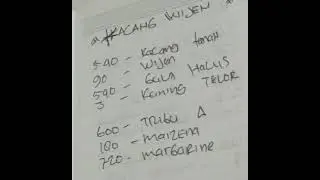 * KACANG WIJEN
540 - Kacang tanah
90 - Wijen
540 - Gula HALUS
3 - Kuning TELOR
600 - TRIGU Δ
180 - maizena
720 - margarine